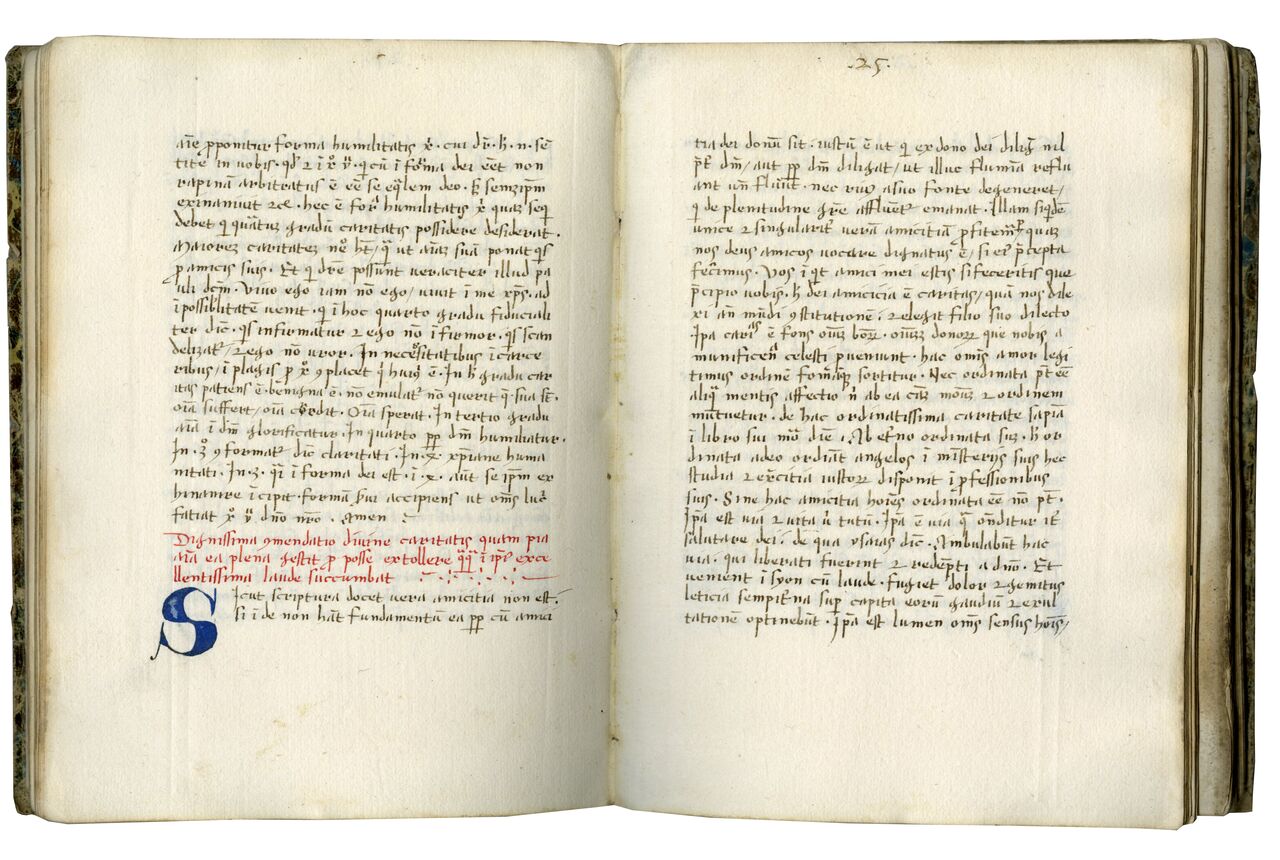 aīe ꝓponitur forma humilitatis xͥ. cui dr̄. h̄. n. sē
tite in vobis. qd̄ ⁊ ī xͦ yͧ. q cū ī for̄ma dei eēt non
rapinā arbitratus ē eē se eq̄lem deo. ſꝫ semꝫip̄m
exinanivit ⁊cͣ. hec ē forͣ humilitatis xͥ quaꝫ seq̄
debet q quātuꝫ gradū caritatis possidere desiderat.
Maioreꝫ caritateꝫ neͦ hꝫ̄, qͣ ut aīaꝫ suā ponat qͥs
ꝓ amicis suis. Et q dr̄e possunt veraciter illud pa
uli dcm̄. Vivo ego iam nō ego, vivit ī me xp̄s. ad
īpossiblitatē venit. q ī hoc quarto gradu fiduciali
ter dic̄. qͥs infirmatur ⁊ ego nō īfirmor. qͥs scan
delizatͬ, ⁊ ego nō uror. In necēsitatibus ī carce
ribus, ī plagis ꝑ xͦ ꝯplacet qͥ hāiꝰ ē. In h̄ gradu car
itas patiens ē. benigna ē. nō emulatͬ nō querit q̄ sua st̄.
oīa suffert, oīa crēdit. Oīa sperat. In tertio gradu
aīa ī dm̄ glorificatur. In quarto ꝓꝑ dm̄ humiliatur.
In. 3ͦ ꝯformatͬ dic̄ claritati. In. 4ͦ xp̄iane huma
nitati. In. 3. qͥ ī forma dei est. ī. 4. aūt se ip̄m ex
hinanire īcipit. formā ẜui accipiens ut om̄s lucͬ
fatiat xͦ yͧ dn̄o nr̄o. Amen :
Dignissima ꝯmendatio divine caritatis quam pia
aīa ea plena gestit ꝓ posse extollere qͣqͣ ī ip̄iꝰ exce
llentissima laude succumbat
Sicut scriptura docet vera amicitia non est.
Si īde non hāt fundamentū ea ꝓꝑ cū amici
.25.
tia dei donū sit. iustū ē ut q ex dono dei diliḡ nil
p̄t dm̄, aut ꝓꝑ dm̄ diligat, ut illuc flumīa reflu
ant un̄ fluūt. nec rivꝰ a suo fonte degeneret,
q de plenitudine gr̄e affluentͬ emanat. Illam siqͥdē
unice ⁊ singularitͬ verā amicitiā ꝓfitemͬ quaꝫ
nos deus amicos vocare dignatus ē, si eiꝰ p̄cepta
fecīmus. Vos īqͥt amici mei estis si feceritis que
p̄cipio vobis. h̄ dei amicicia ē caritas, quā nos dile
xi an̄ mūdi ꝯstitutionē. ⁊ elegit filio suo dilecto
Ip̄a caritͣs ē fons oīuꝫ bonoꝝ. oīuꝫ donoꝝ que nobis a
munificen̄ celesti ꝓveniunt. hac om̄is amor legi
timus ordinē formāqꝫ sortitur. Nec ordinata p̄t eē
aliqͣ mentis affectio n̄ ab ea cāꝫ moꝫ̄ ⁊ ordinem
mūtuetur. de hac ordinatissima caritate sapia
ī libro sui mͦ dic̄e. Ab et̄no ordinata suꝫ. h̄ or
dinata adeo ordīat angelos ī misterijs suis hec
studia ⁊ exercitia iustoꝝ disponit ī ꝓfessionibus
suis. Sine hac amicitia hoīes ordinata eē nō p̄t.
Ip̄a est via ⁊ vita v̄ tuti. Ip̄a ē via qͣ on̄ditur itͬ
salutare dei. de qua ysaias dic̄. Ambulabūt hac
via. qui liberati fuerint ⁊ redēpti a dn̄o. Et
venient ī syon cū laude. fugiet dolor ⁊ gemitus
leticia sempit̄na suꝑ capita eorū gaudiū ⁊ exul
tationē optinebūt. Ip̄a est lumen om̄s sensus hoīs,